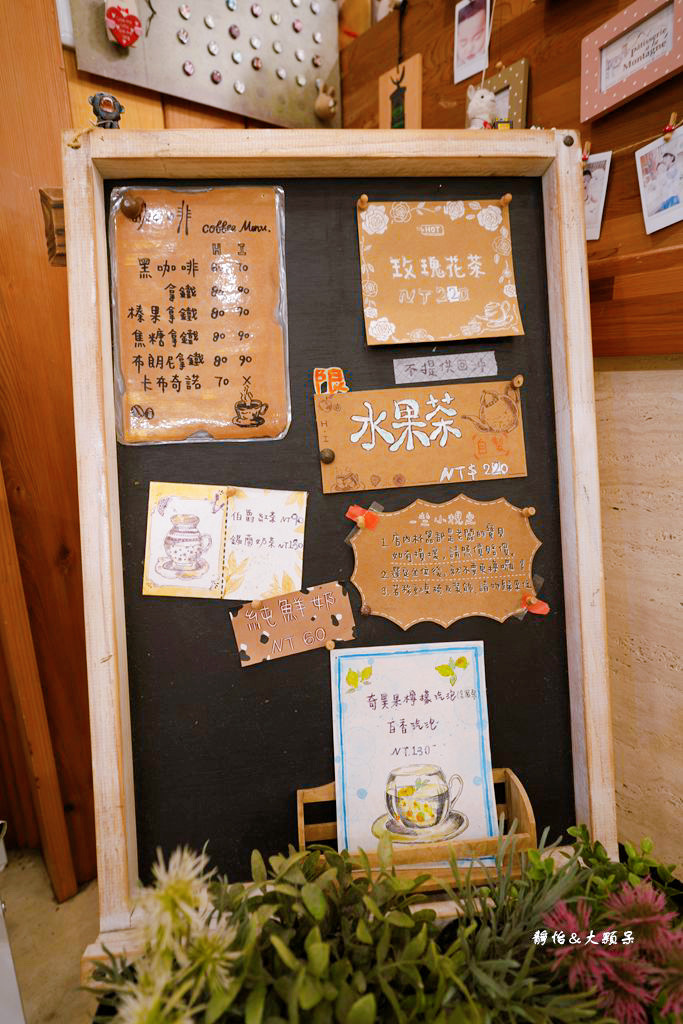 啡 coffee Menu.
H I
黑咖啡 60 70
拿鐵 80 90
榛果拿鐵 80 90
焦糖拿鐵 80 90
布朗尼拿鐵 80 90
卡布奇諾 70 ×
HOT
玫瑰花茶
NT 220
不提供回沖
限
H.I
水果茶
自製
NT$ 220
伯爵紅茶 NT
錫蘭奶茶 NT
純鮮奶
NT 60
一些小規定
1. 店內杯器都是老闆的寶貝
如有損壞，請照價賠償。
奇異果檸檬汽泡
百香汽泡
NT.130
Pâtisserie
de la
Montagne
靜怡&大顆呆